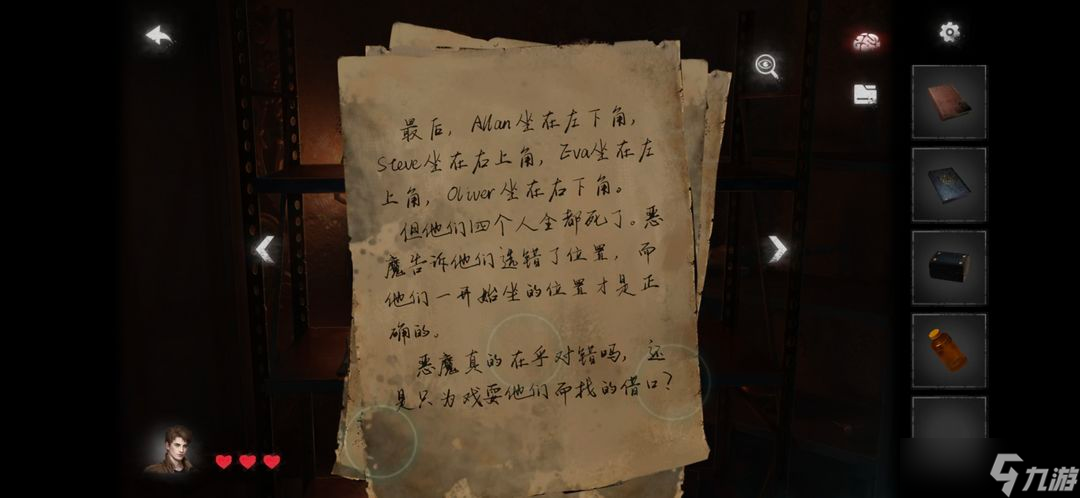 最后，Allan坐在左下角，
Steve坐在右上角，Eva坐在左
上角，Oliver坐在右下角。
但他们四个人全都死了。恶
魔告诉他们选错了位置，而
他们一开始坐的位置才是正
确的。
恶魔真的在乎对错吗，还
是只为戏耍他们而找的借口？
九游